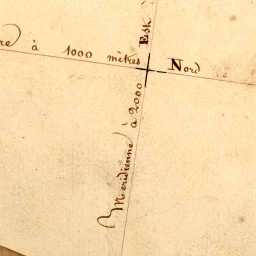 Est
re à 1000 mètres Nord
Méridienne à 2000